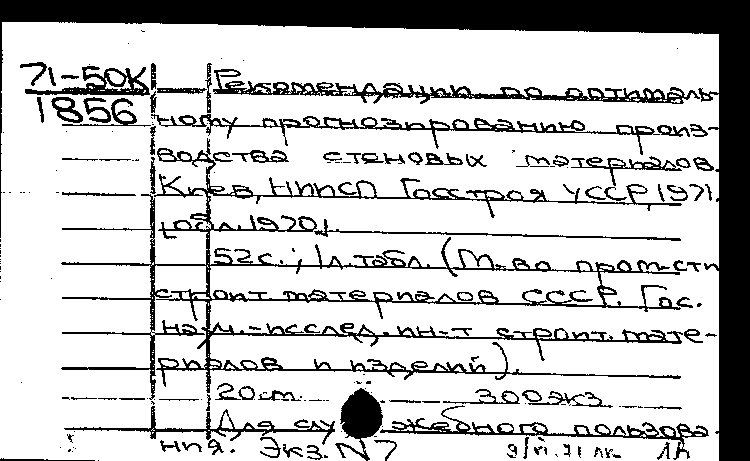 71-50К
1856
Рекомендации по оптималь-
ному прогнозированию произ-
водства стеновых материалов.
Киев, НИИСП Госстроя УССР, 1971.
[обл. 1970].
52с.; 1л.табл. (М-во пром-сти
строит. материалов СССР. Гос.
науч.-исслед. ин-т строит. мате-
риалов и изделий).
20см. 300экз
Для служебного пользова-
ния. Экз. N7